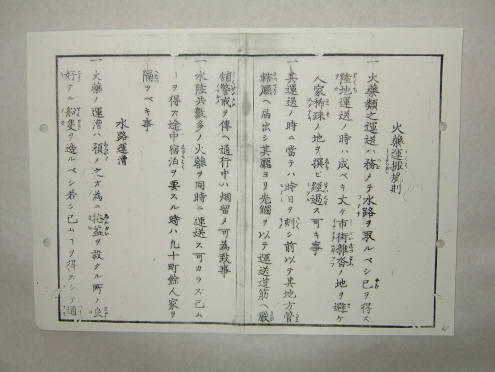 火藥運搬規則
一 火藥類之運送ハ務メテ水路ヲ取ルベシ已ヲ得ス
陸地運送ノ時ハ成ベキ丈ケ市街雜沓ノ地ヲ避ケ
人家稀踈ノ地ヲ撰ヒ經過ス可キ事
一 其運送ノ時ニ當テハ時日ヲ刻シ前以テ其地方管
轄廳ヘ届出シ其廳ヨリ先觸ヲ以テ運送道筋ヘ嚴
警戒ヲ傳ヘ通行中ハ烟留メ可為致事
一 水陸共數多ノ火藥ヲ同時ニ運送ス可カラズ已ム
ヲ得ス途中宿泊ヲ要スル時ハ九十町餘人家ヲ
隔ツベキ事
水路運漕
一 火藥ノ運漕ハ預メ之カ為ニ ヲ設クル所ノ良
好ナル船隻ヲ造ルベシ若シ已ムヲ得スシテ通